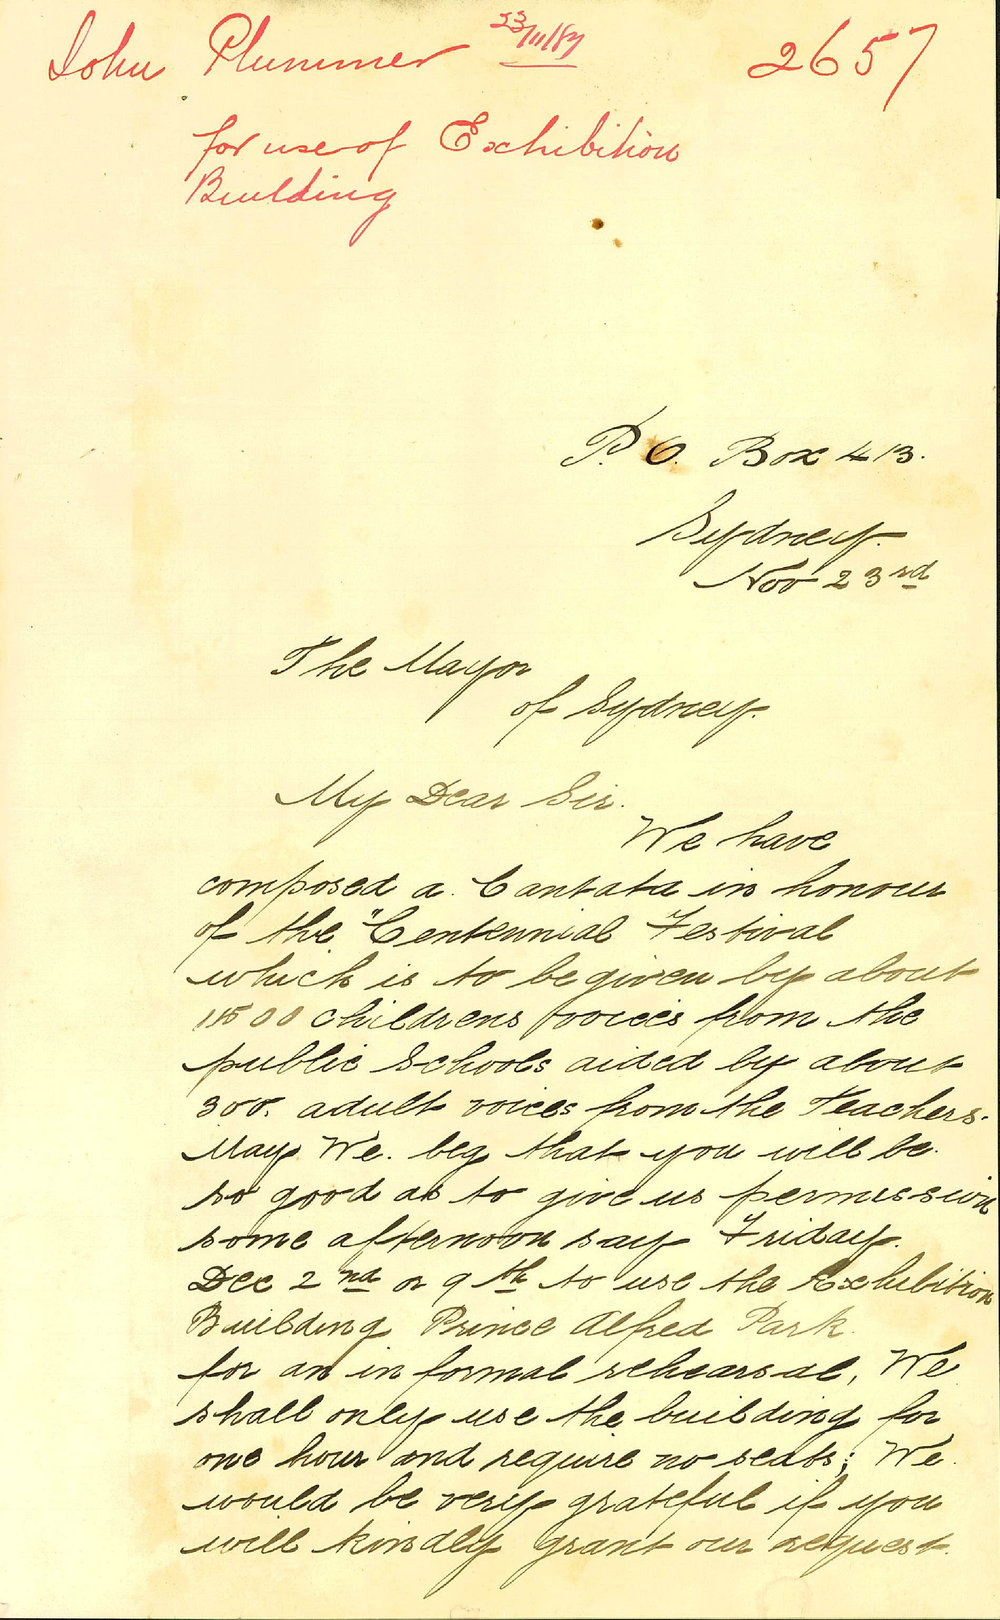 John Plummer 23/11/87 2657
for use of Exhibition
Building
P.O. Box 413.
Sydney.
Nov 23rd
The Mayor
of Sydney.
My Dear Sir.
We have
composed a Cantata in honour
of the "Centennial Festival
which is to be given by about
1500 childrens voices from the
public Schools aided by about
300. adult voices from the Teachers.
May We. beg that you will be
so good as to give us permission
some afternoon say Friday.
Dec 2nd or 9th to use the Exhibition
Building Prince Alfred Park.
for an informal rehearsal, We
shall only use the building for
one hour and require no seats; We
would be very grateful if you
will kindly grant our request.